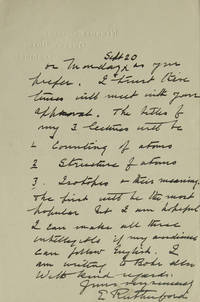 Sept 20
or Monday, as you
prefer. I trust these
times will meet with your
approval. The titles of
my 3 lectures will be
1. Counting of atoms
2 Structure of atoms
3. Isotopes & their meaning.
The first will be the most
popular but I am hopeful
I can make all three
intelligible if my audience
can follow English. I
am writing to
With kind regards
Yours sincerely
E Rutherford